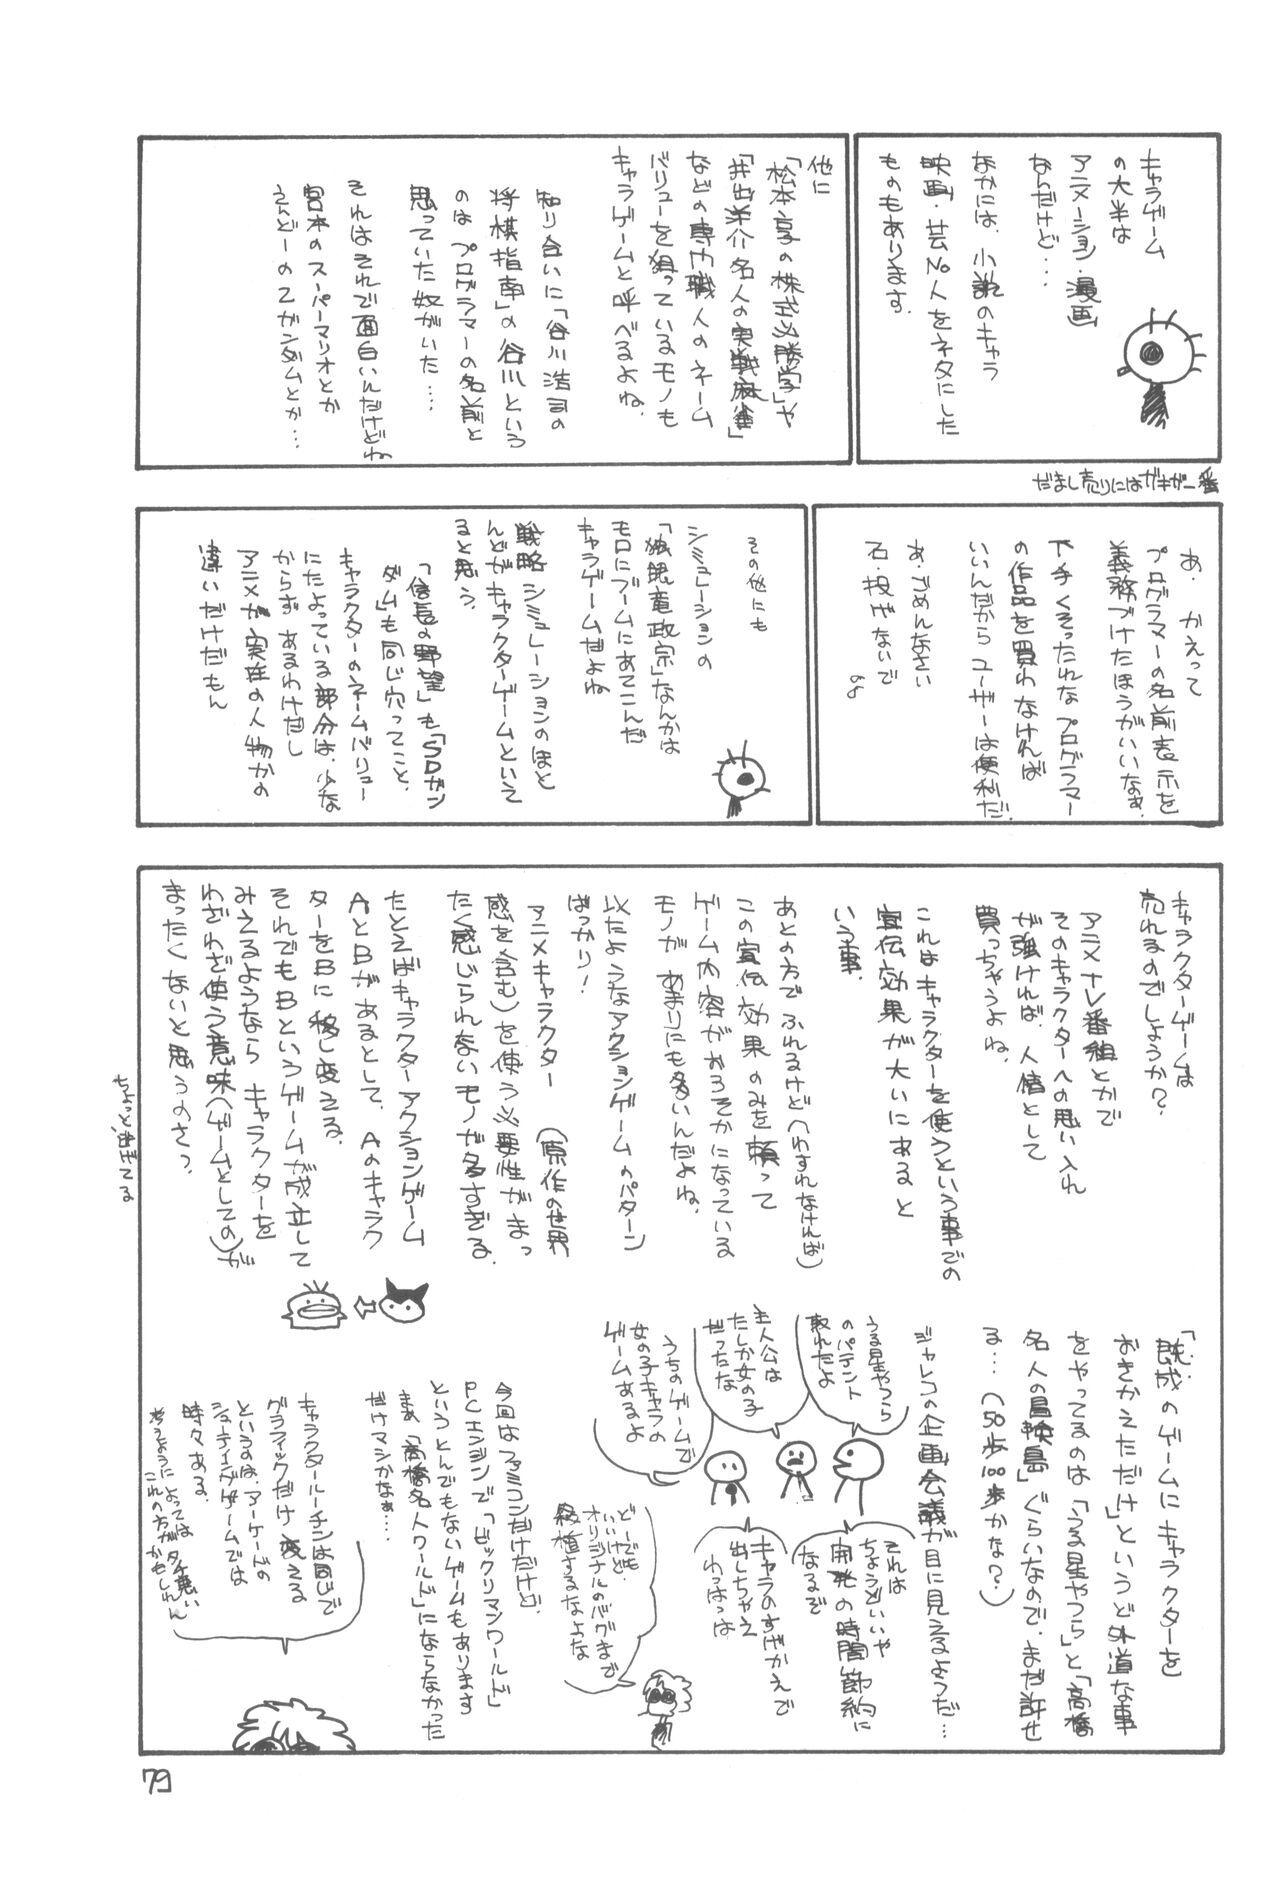 キャラゲーム
の大半は
アニメーション・漫画
なんだけど…
なかには、小説のキャラ
映画・芸No人をネタにした
ものもあります。
他に
「松本亨の株式必勝学」や
「井出洋介名人の実戦麻雀」
などの専門職人のネーム
バリューを狙っているモノも
キャラゲームと呼べるよね。
知り合いに「谷川浩司の
将棋指南」の谷川という
のは プログラマーの名前と
思っていた奴がいた…
それはそれで面白いんだけどね
宮本のスーパーマリオとか
えんどーのZガンダムとか…
だまし売りにはガキが一番
あ. かえって
プログラマーの名前表示を
義務づけたほうがいいなぁ
下手くそったれな プログラマー
の作品を買わなけんば
いいんだから ユーザーは便利だ.
あ.ごめんなさい
石・投げないで
その他にも
シミュレーションの
「独眼竜政宗」なんかは
モロにブームにあてこんだ
キャラゲームだよね
戦略シミュレーションのほと
んどがキャラクターゲームといて
ると思う.
「信長の野望」も「SDガン
ダム」も同じ穴ってこと.
キャラクターのネームバリュー
にたよっている部分は、少な
からず あるわけだし
アニメか実在の人物かの
違いだけだもん
キャラクターゲームは
売れるのでしょうか?
アニメ・TV番組とかで
そのキャラクターへの思い入れ
が強ければ、人情として
買っちゃうよね.
これはキャラクターを使うという事での
宣伝効果が大いにあると
いう事.
あとの方で ふれるけど(わすれなければ)
この宣伝効果のみを頼って
ゲーム内容がおろそかになっている
モノが あまりにも多いんだよね.
以たようなアクションゲームのパターン
ばっかり!
アニメキャラクター (原作の世界
感を含む)を使う必要性がまっ
たく感じられないモノが多すぎる.
たとえばキャラクターアクションゲーム
AとBがあるとして、Aのキャラク
ターをBに移し変える.
それでもBというゲームが成立して
みえるようなら キャラクターを
わざわざ使う意味(ゲームとしての)が
まったくないと思うのさっ
ちょっと逃げてる
「既成のゲームにキャラクターを
おきかえただけ」というど外道な事
をやってるのは「うる星やつら」と「高橋
名人の冒険島」ぐらいなので、まだ許せ
る…(50歩100歩かな?)
ジャレコの企画会議が目に見えるようだ…
うる星やつら
のパテント
取れたよ
主人公は
たしか女の子
だったな
うちのゲームで
女の子キャラの
ゲームあるよ
それは
ちょうどいいや
開発の時間節約に
なるぞ
キャラのすげかえで
出しちゃえ
わっはっは
どーでも
いいけど.
オリジナルのバグまで
移植するなよな
今回はファミコンだけだけど、
PCエンジンで「ビックリマンワールド」
というとんでもないゲームもあります
まぁ「高橋名人ワールド」にならなかった
だけマシかなぁ…
キャラクタールーチンは同じで
グラフィックだけ 変える
というのは、アーケードの
シューティングゲームでは
時々ある.
考えようによっては
これの方がタチ悪い
かもしれん
79